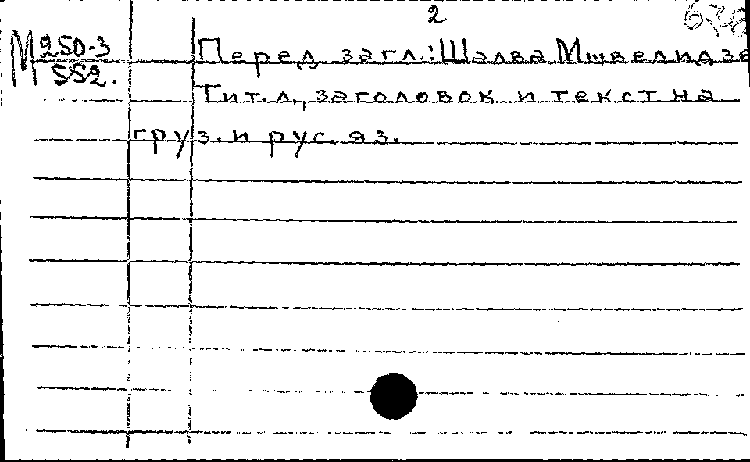 2
М 250-3
552.
Перед загл.: Шалва Мшвелидзе
Тит. л., заголовок и текст на
груз. и рус. яз.